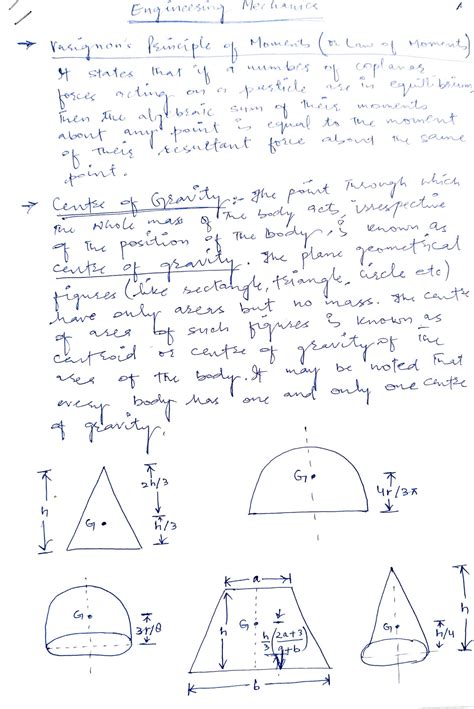 Engineering Mechanics
→ Varignon's Principle of Moments (or Law of Moments)
It states that if a number of coplanar
forces acting on a particle are in equilibrium,
then the algebraic sum of their moments
about any point is equal to the moment
of their resultant force about the same
point.
→ Centre of Gravity:- The point through which
the whole mass of the body acts, irrespective
of the position of the body, is known as
centre of gravity. The plane geometrical
figures (like rectangle, triangle, circle etc)
have only areas but no mass. The centre
of area of such figures is known as
centroid or centre of gravity of the
area of the body. It may be noted that
every body has one and only one centre
of gravity.
h
G
2h/3
h/3
G
4r/3π
G
3r/8
a
h
G
h/3 (2a+3/a+b)
b
G
h
h/4